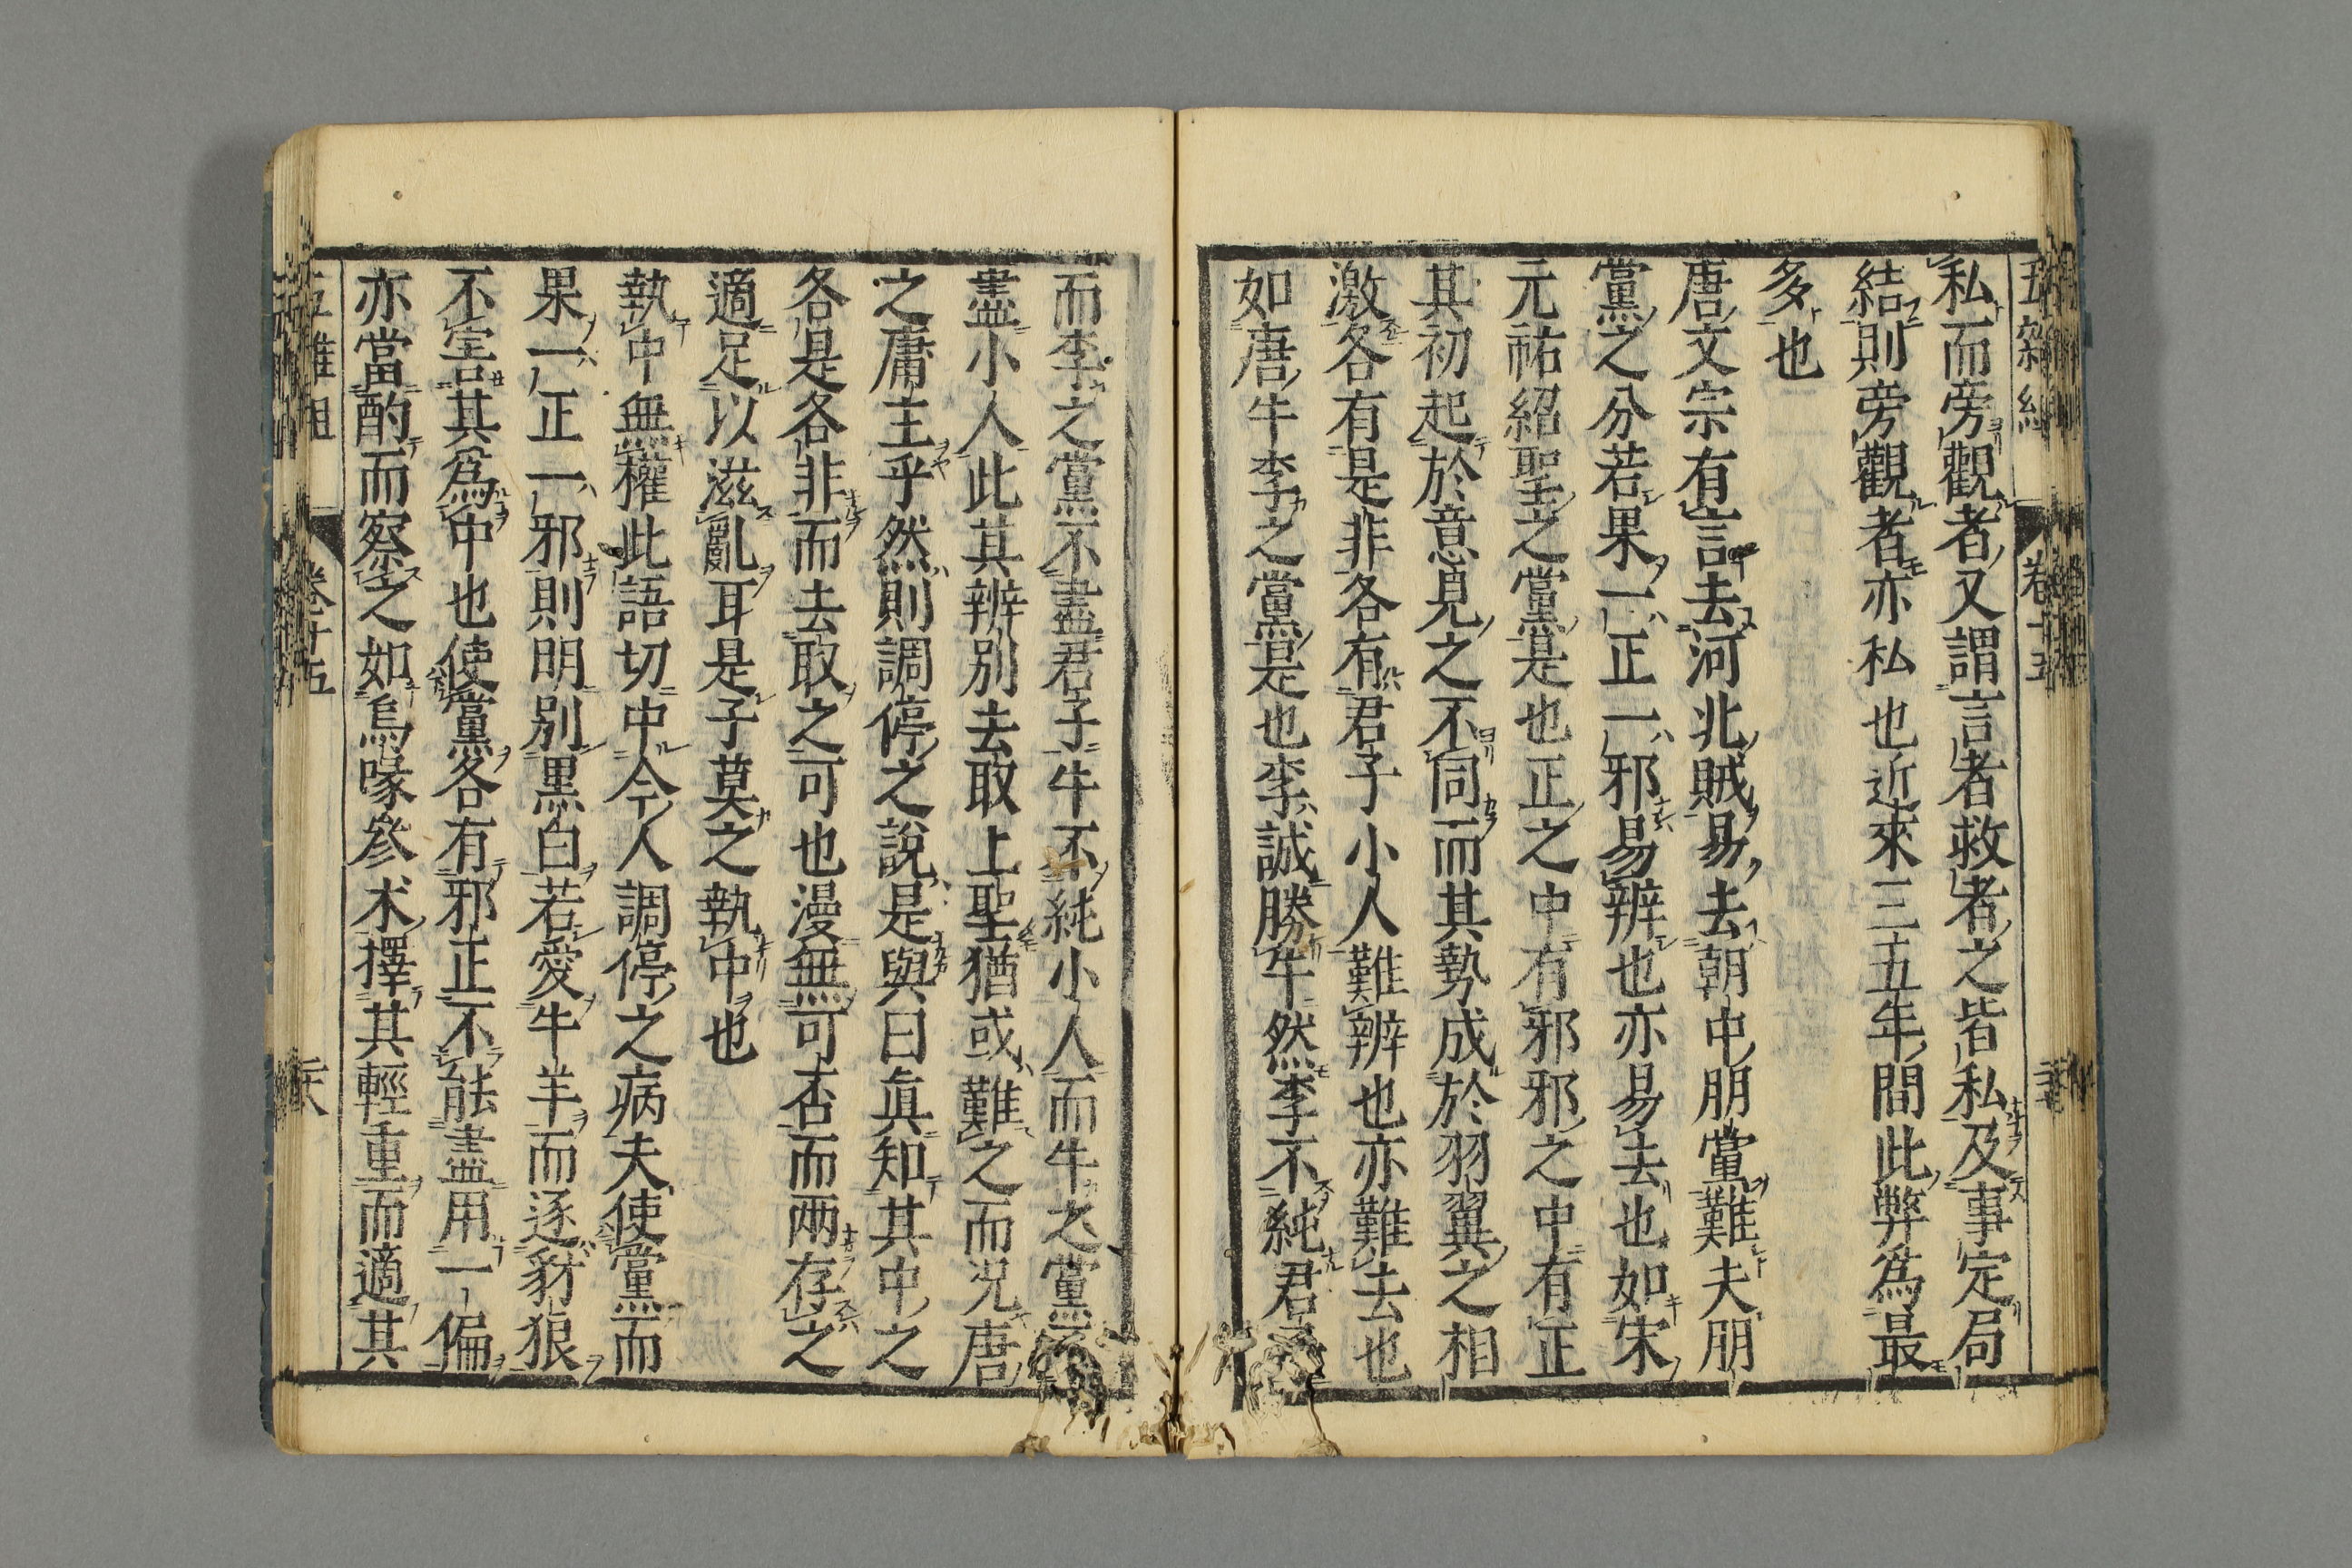 五雜組 卷十五
私而旁觀者又謂言者救者之皆私及事定局
結則旁觀者亦私也近來三五年間此弊爲最
多也
唐文宗有言去河北賊易去朝中朋黨難夫朋
黨之分若果一正一邪易辨也亦易去也如宋
元祐紹聖之黨是也正之中有邪邪之中有正
其初起於意見之不同而其勢成於羽翼之相
激各有是非各有君子小人難辨也亦難去也
如唐牛李之黨是也李誠勝牛然李不純君
而李之黨不盡君子牛不純小人而牛之黨
盡小人此其辨別去取上聖猶或難之而况唐
之庸主乎然則調停之說是與曰眞知其中之
各是各非而去取之可也漫無可否而两存之
適足以滋亂耳是子莫之執中也
執中無權此語切中今人調停之病夫使黨而
果一正一邪則明別黒白若愛牛羊而逐豺狼
不害其爲中也使黨各有邪正不能盡用一偏
亦當酌而察之如烏喙參术擇其輕重而適其
五雜組 卷十五 二六